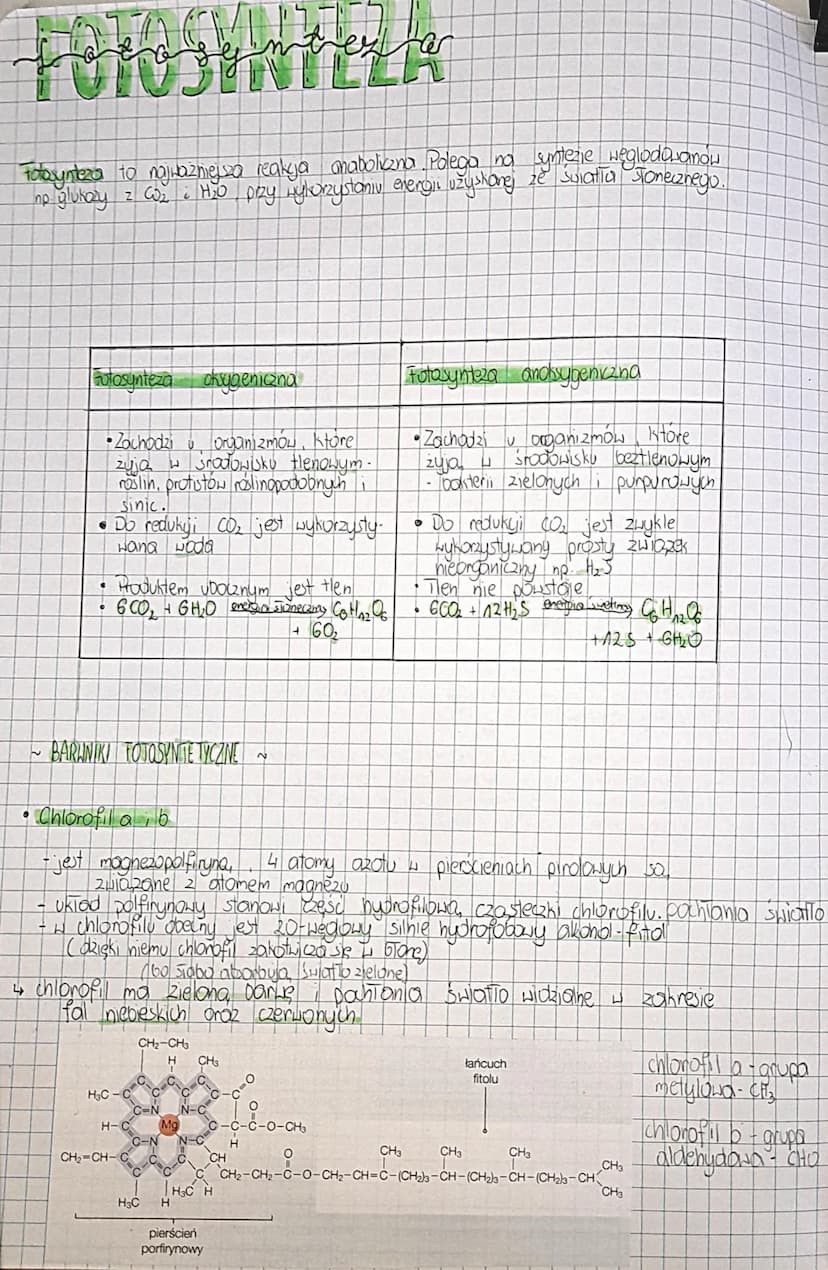 FOTOSYNTEZA
fotosynteza
Fotosynteza to najważniejsza reakcja anaboliczna. Polega na syntezie węglodowanów
np glukozy z CO₂ i H₂O, przy wykorzystaniu energii uzyskanej ze światła słonecznego.
Fotosynteza oksygeniczna
• Zachodzi u organizmów, które
żyją w środowisku tlenowym -
roślin, protistów roślinopodobnych i
sinic.
• Do redukcji CO₂ jest wykorzysty-
wana woda
• Produktem ubocznym jest tlen
• 6CO₂ + 6H₂O energia słoneczna C₆H₁₂O₆
+ 6O₂
Fotosynteza anoksygeniczna
• Zachodzi u organizmów, które
żyją w środowisku beztlenowym
- bakterii zielonych i purpurowych
• Do redukcji CO₂ jest zwykle
wykorzystywany prosty związek
nieorganiczny np. H₂S
• Tlen nie powstaje
• 6CO₂ + 12H₂S energia świetlna C₆H₁₂O₆
+12S + 6H₂O
~ BARWNIKI FOTOSYNTETYCZNE ~
• Chlorofil a i b
- jest magnezopolfiryną, 4 atomy azotu w pierścieniach pirolowych są
związane z atomem magnezu
- układ polfirynowy stanowi część hydrofilową, cząsteczki chlorofilu. pochłania światło
- w chlorofilu obecny jest 20-węglowy silnie hydrofobowy alkohol - fitol
(dzięki niemu chlorofil zakotwicza się w błonę)
(bo słabo absorbują światło zielone)
↳ chlorofil ma zieloną barwę i pochłania światło widzialne w zakresie
fal niebieskich oraz czerwonych
CH₂–CH₃
H CH₃
C C C O
H₃C–C C C C–C
C=N N–C O
H–C Mg C–C–C–O–CH₃
C–N N–C H
CH₂=CH–C C C CH O CH₃ CH₃ CH₃ CH₃
C C C CH₂–CH₂–C–O–CH₂–CH=C–(CH₂)₃–CH–(CH₂)₃–CH–(CH₂)₃–CH
H₃C H H₃C H CH₃
łańcuch
fitolu
pierścień
porfirynowy
chlorofil a - grupa
metylowa - CH₃
chlorofil b - grupa
aldehydowa - CHO